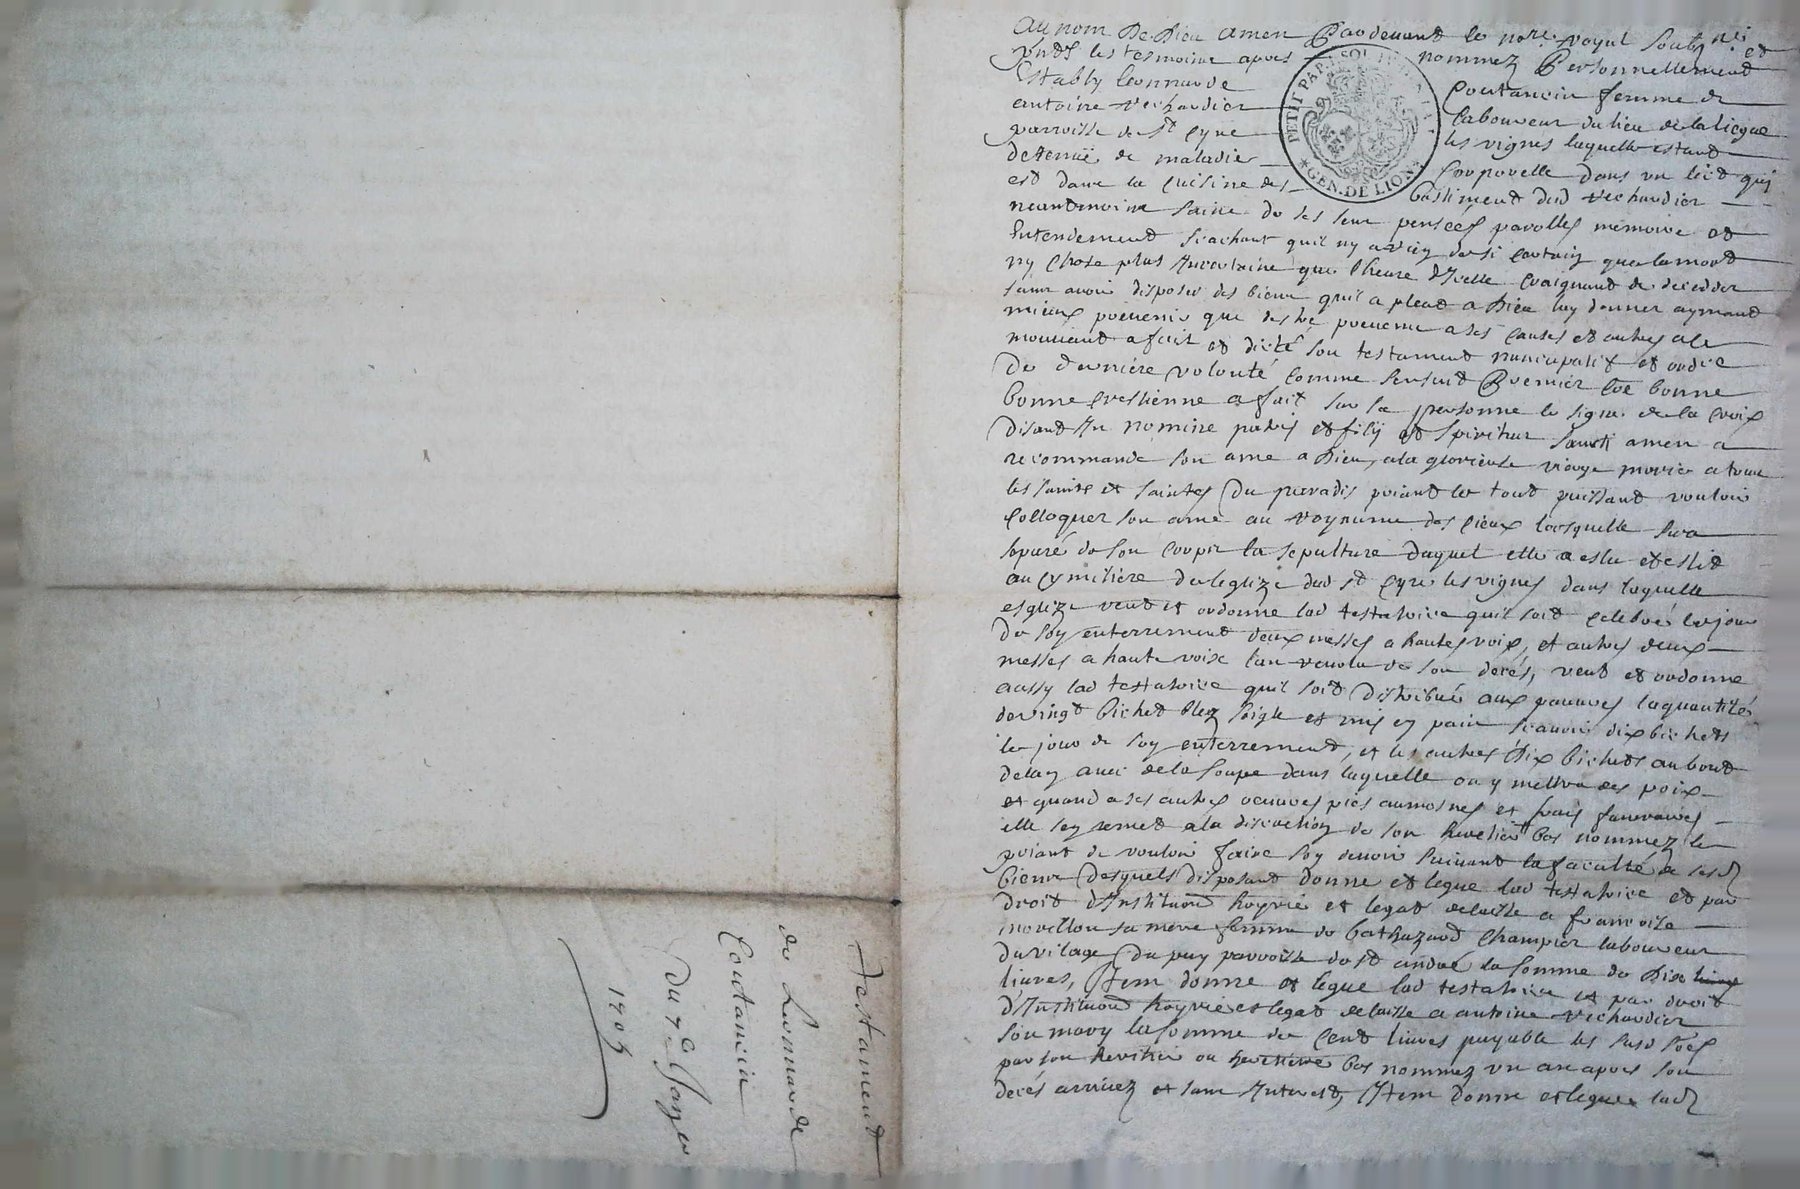 au nom De Dieu amen Pardevant le no.re royal soubz.né et
p.nts les tesmoins apres nommez Personnellement
Establÿ Leonnarde Coutancin femme de
antoine Vechardier laboureur du lieu de la liegue
parroisse de St Cyre les vignes laquelle estant
detenuë de maladie corporelle dans un lict quj
est dans la cuisine des bastiment dud Vechardier
neantmoins saine de ses sens penseés parolles memoire et
Entendement scachant quil ny a rien de si certain que la mort
ny chose plus Incertaine que lheure d'Icelle craignant de deceder
sans avoir disposer des biens quil a pleut a Dieu luy donner aymant
mieux prevenir que destre prevenue a ses causes et autres a ce
mouvant a fait et dicté son testament nuncupatif et ordre
De derniere volonté comme sensuit Premier co͞e bonne
bonne crestienne a fait sur sa personne le signe de la croix
Disant In nomine patris et filij et spiritus sancti amen a
recommande son ame a Dieu, a la glorieuse vierge marie a tous
les saints et saintes Du paradis priant le tout puissant vouloir
Colloquer son ame au royaume des cieux lorsquelle sera
separé de son corps la sepulture duquel elle a eslu et eslit
au cymitiere de leglize dud St Cyre les vignes dans laquelle
esglize veut et ordonne lad testatrice quil soit celebré le jour
De son enterrement deux messes a hautes voix, et autres deux
messes a haute voix lan revolu de son decés, veut et ordonne
aussy lad testatrice quil soit Distribué aux pauvres la quantité
de vingt bichet blez seigle et mis en pain scavoir dix bichets
le jour de son enterrement, et les autres Dix bichets au bout
de lan avec de la soupe dans laquelle on y mettra des poix
et quand a ses autres oeuvres pies aumosnes et frais funeraires
elle sen remet a la discretion de son heritier bas nommez le
priant de vouloir faire son devoir suivant la faculté de sesd
biens Desquels disposant donne et legue lad testatrice et par
droit d'Institution hoyrie et legat delaisse a francoise
morillon sa mere femme de bathazard Champier laboureur
du vilage Du puy parroisse de St andré la somme de Dix livres
livres, Item donne et legue lad testatrice et par droit
d'Institution hoyrie et legat delaisse a antoine Vechardier
son mary la somme de cent livres payable les susd
par son heritier ou heritiere bas nommez un an apres son
decés arrivez et sans Interest, Item donne et legue lad
PETIT PAP. GEN. DE LION
Testament
de Leonnarde
Coutancin
Du 7e Janver
1705